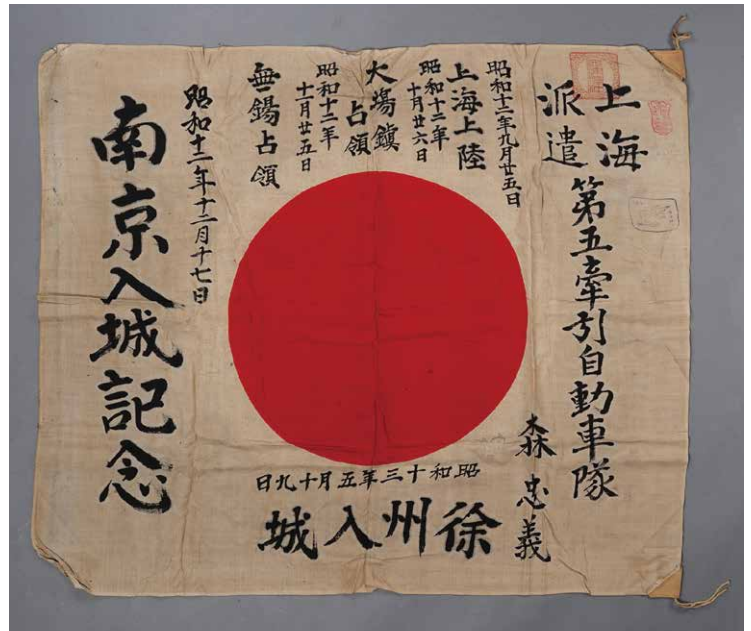 上海
派遣
第五牽引自動車隊
森忠義
昭和十二年九月廿五日
上海上陸
昭和十二年
十月廿六日
大場鎮
占領
昭和十二年
十一月廿五日
無錫占領
昭和十二年十二月十七日
南京入城記念
昭和十三年五月十九日
徐州入城